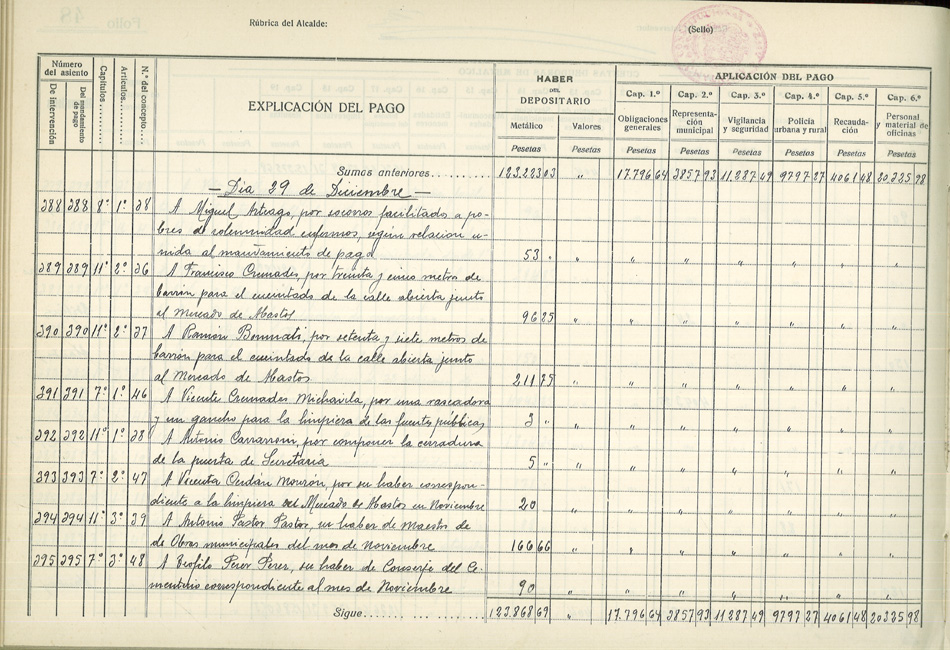 Rúbrica del Alcalde: (Sello)
Número del asiento
De intervención
Del mandamiento de pago
Capítulos
Artículos
N.º del concepto
EXPLICACIÓN DEL PAGO
HABER DEL DEPOSITARIO
Metálico Valores
Pesetas Pesetas
APLICACIÓN DEL PAGO
Cap. 1.º Cap. 2.º Cap. 3.º Cap. 4.º Cap. 5.º Cap. 6.º
Obligaciones generales
Representación municipal
Vigilancia y seguridad
Policía urbana y rural
Recaudación
Personal y material de oficinas
Pesetas Pesetas Pesetas Pesetas Pesetas Pesetas
Sumas anteriores 123.223 03 " 17.796 64 3857 93 11.287 49 9797 27 4061 48 20.325 98
— Día 29 de Diciembre —
388 388 8º 1º 28 A Miguel Arteago, por socorros facilitados a po-
bres de solemnidad enfermos, según relación u-
nida al mandamiento de pago 53 " " " " " " " "
389 389 11º 2º 36 A Francisco Cremades, por treinta y cinco metros de
barrón para el encintado de la calle abierta junto
al Mercado de Abastos 96 25 " " " " " " "
390 390 11º 2º 37 A Ramón Bennati, por setenta y siete metros de
barrón para el encintado de la calle abierta junto
al Mercado de Abastos 211 75 " " " " " " "
391 391 7º 1º 46 A Vicente Cremades Michavila, por una rascadora
y un gancho para la limpieza de las fuentes públicas 3 " " " " " " " "
392 392 11º 1º 38 A Antonio por componer la cerradura
de la puerta de Secretaría 5 " " " " " " " "
393 393 7º 2º 47 A Vicenta Cerdán Mourón, por su haber correspon-
diente a la limpieza del Mercado de Abastos en Noviembre 20 " " " " " " "
394 394 11º 3º 39 A Antonio Pastor Pastor, su haber de Maestro de
de Obras municipales del mes de Noviembre 166 66 " " " " " " "
395 395 7º 3º 48 A Teofilo Perez Perez, su haber de Conserje del Ce-
menterio correspondiente al mes de Noviembre 90 " " " " " " "
Sigue 123.868 69 " 17.796 64 3857 93 11287 49 9797 27 4061 48 20325 98